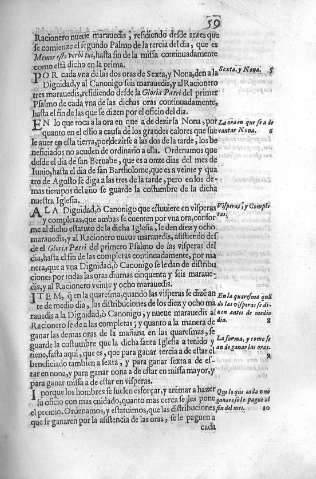 59
Racionero nueve marauedis, residiendo desde antes que
se comience el segundo Psalmo de la tercia del dia, que es
hasta fin de la missa continuadamente
como está dicho en la prima.
POR cada vna de las dos oras de Sexta, y Nona, den a la
Dignidad, y al Canonigo seis marauedis, y al Racionero
tres marauedis, residiendo desde la Gloria Patri del primer
Psalmo de cada vna de las dichas oras continuadamente,
hasta el fin de las que se dizen por el oficio del dia.
Sexta, y Nona.
EN lo que toca a la ora en que a de dezirse la Nona, por
quanto en el estio a causa de los grandes calores que sue
se auer en esta tierra, por dezirse a las dos de la tarde, los be
neficiados no acuden de ordinario a ella. Ordenamos que
desde el dia de san Bernabe, que es a onze dias del mes de
Iunio, hasta el dia de san Bartholome, que es a veinte y qua
tro de Agosto se diga a las tres de la tarde, pero en los de-
mas tiempos del año se guarde la costumbre de la dicha
nuestra Iglesia.
La ora en que se a de
cantar Nona.
A LA Dignidad, ò Canonigo que estuuiere en visperas
y completas, que ambas se cuenten por vna ora, confor
me al dicho estatuto de la dicha Iglesia, le den diez y ocho
marauedis, y al Racionero nueve marauedis, assistiendo des
de el Gloria Patri del primero Psalmo de las visperas del
dia, hasta el fin de las completas continuadamente, por ma
nera, que a vna Dignidad, ò Canonigo se le dan de distribu
ciones por todas las oras diurnas cinquenta y seis maraue-
dis, y al Racionero veinte y ocho marauedis.
Visperas, y Comple
tas.
ITEM, q en la quaresma, quando las visperas se dizen an
tes de medio dia, las distribuciones de los diez y ocho
marauedis a la Dignidad, ò Canonigo, y nueve marauedis al
Racionero se den a las completas, y quanto a la manera de
ganar las demas oras de la mañana en las quaresmas, se
guarde la costumbre que la dicha santa Iglesia a tenido y
tiene, hasta aqui, que es, que para ganar tercia a de estar el
beneficiado tambien a sexta, y para ganar sexta a de es-
tar en nona, y para ganar nona a de estar en missa mayor, y
para ganar missa a de estar en visperas.
En la quaresma
de las visperas se di-
zen antes de medio
dia.
La forma, y como se
an de ganar las oras.
I porque los hombres se suelen esforçar, y animar a hazer
su oficio con mas cuidado, quanto mas cerca se les pone
el premio. Ordenamos, y estatuimos, que las distribuciones
que se ganaren por la assistencia de las oras, se le paguen a
cada
Que lo que cada vno
ganare se le pague al
fin del mes.
10